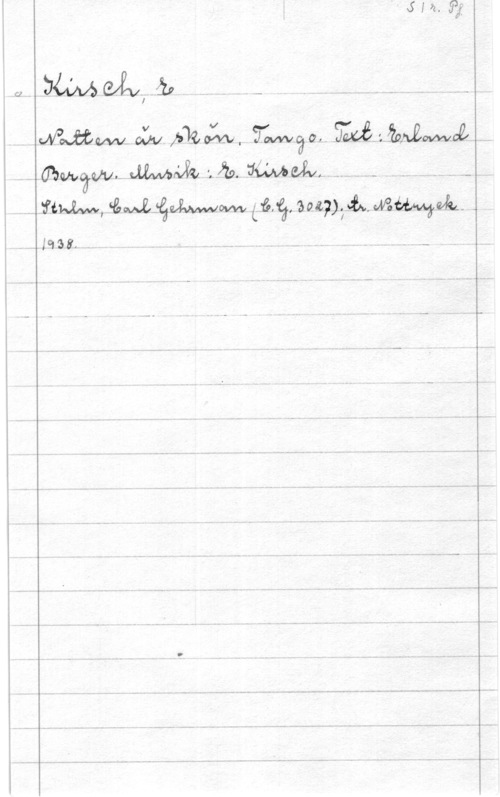 S 1 r. Pf
Kirsch, E
Natten är skön. Tango. Text: Erland
Berger. Musik: E. Kirsch.
Sthlm, Carl Gehrman (C.G. 3027), tr. Nottryck
1938.